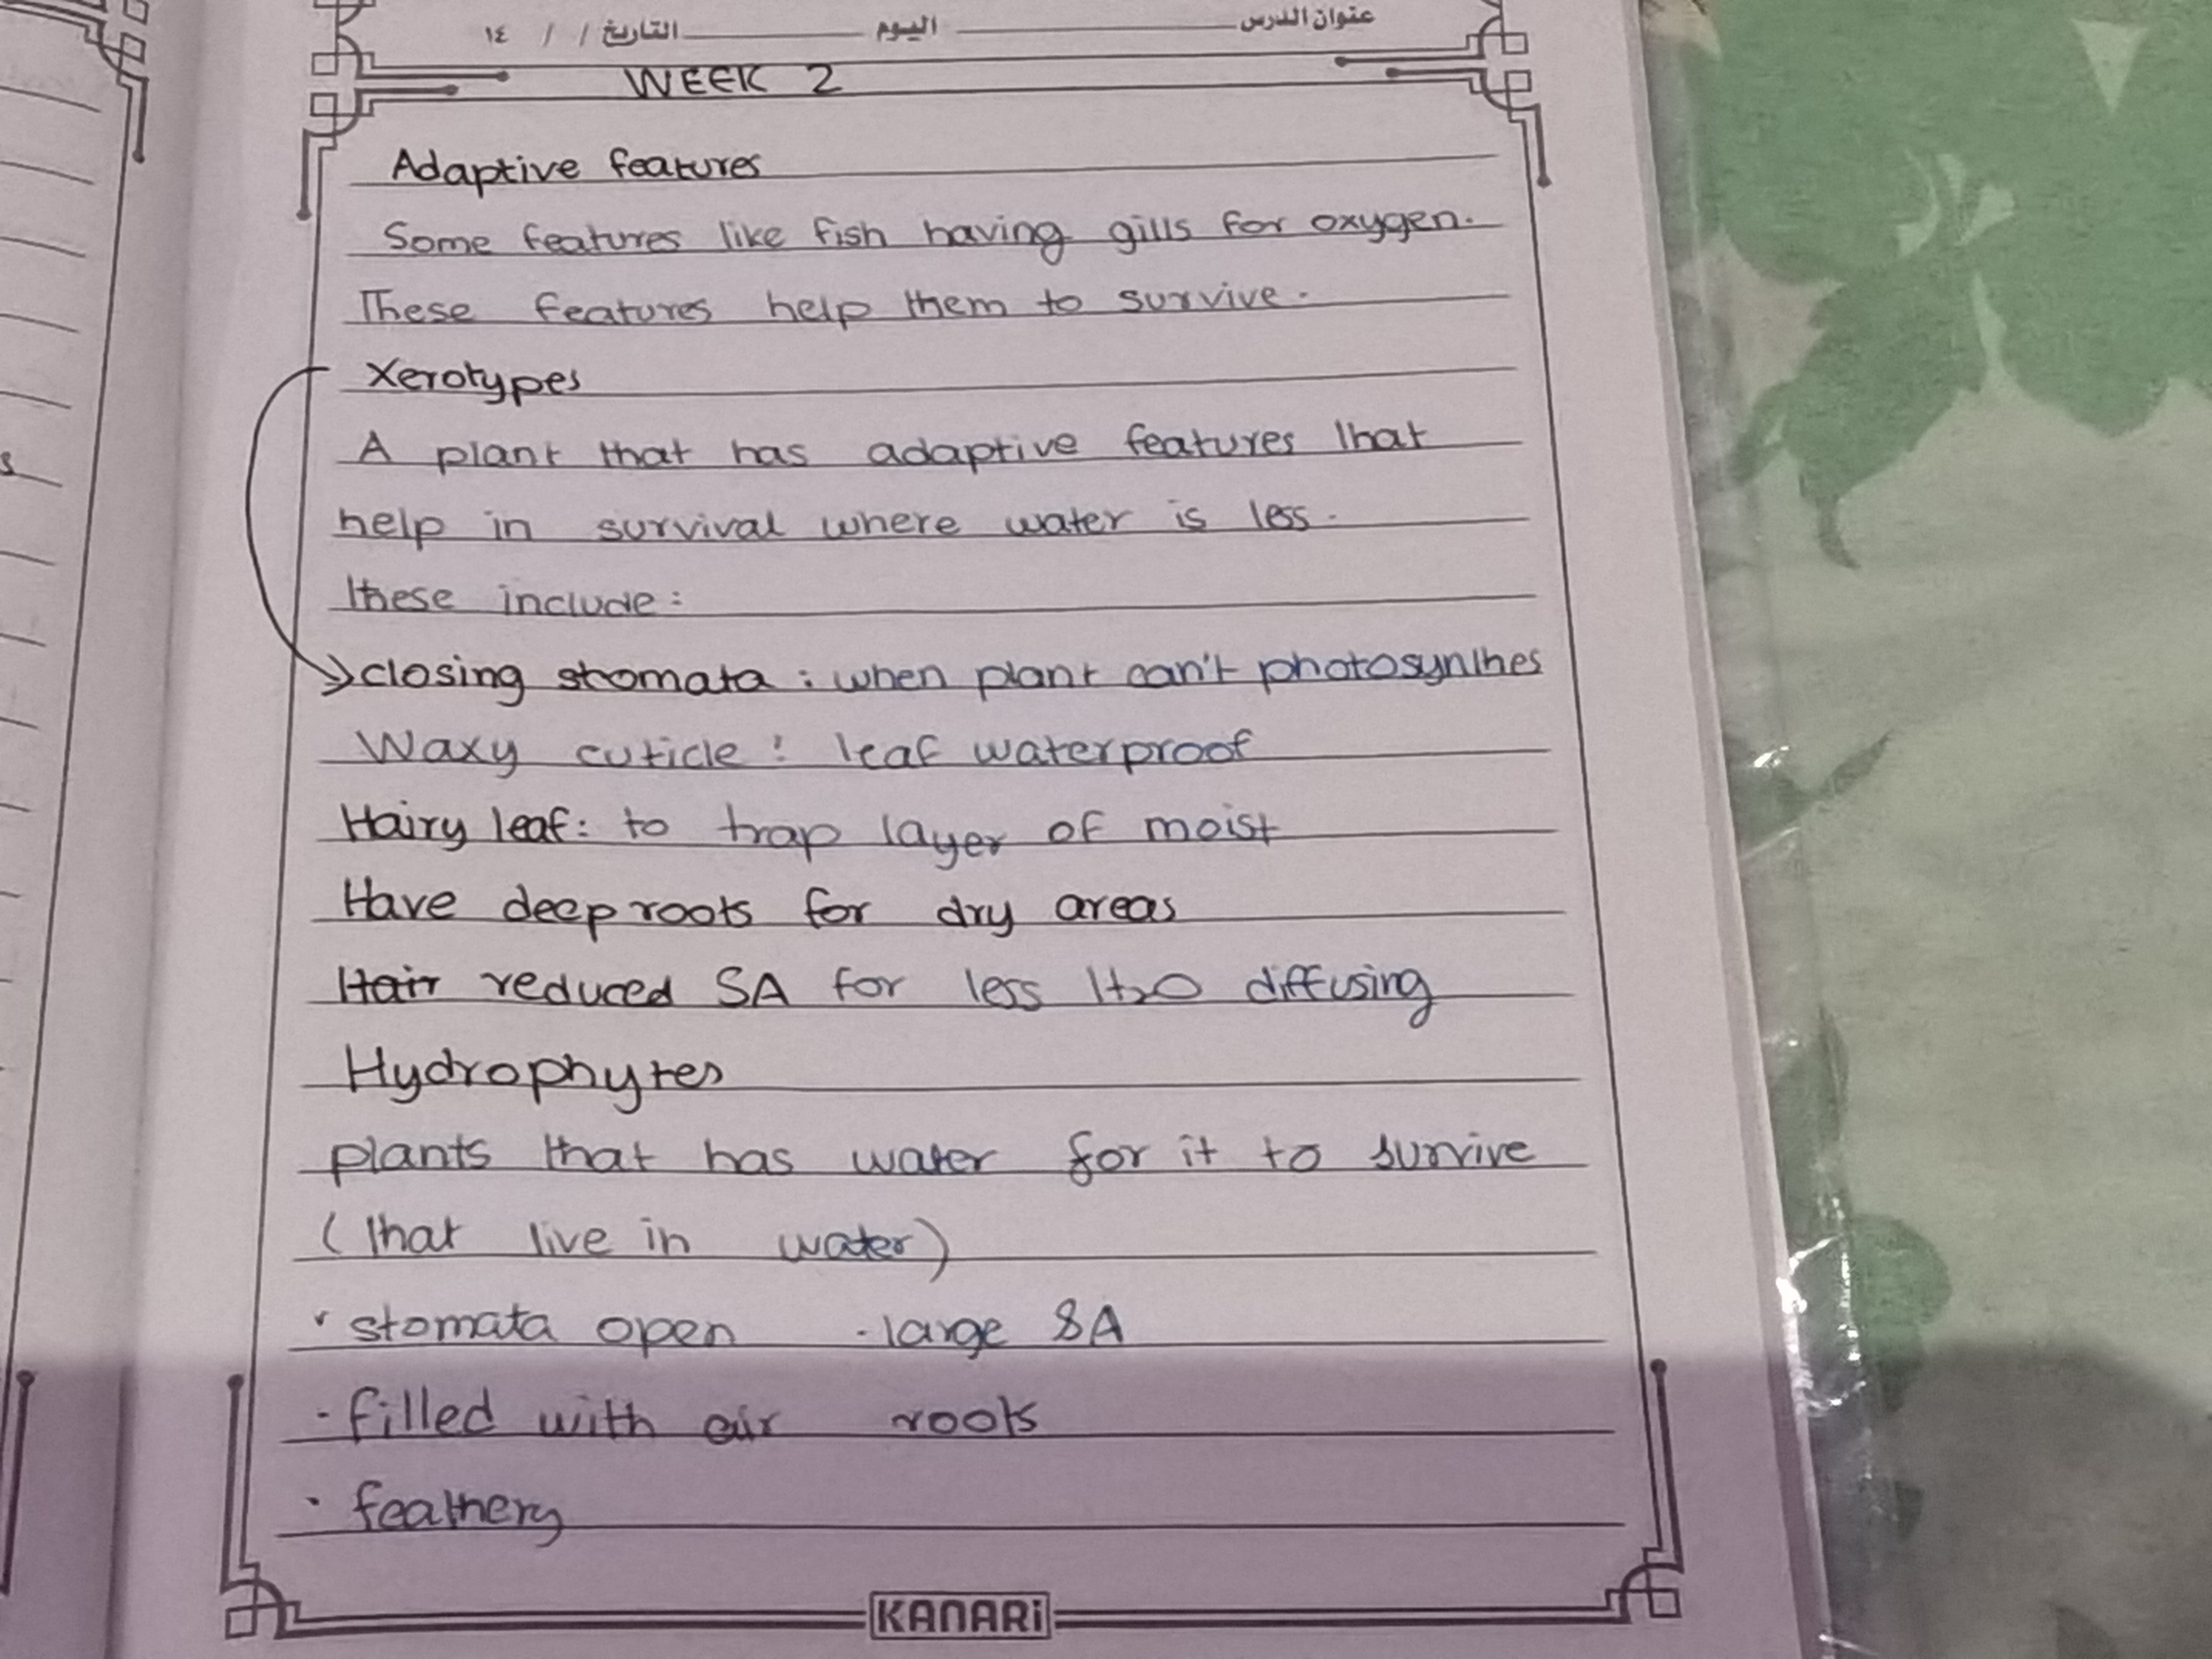 عنوان الدرس اليوم التاريخ / / ١٤
WEEK 2
Adaptive features
Some features like fish having gills for oxygen.
These features help them to survive.
Xerotypes
A plant that has adaptive features that
help in survival where water is less.
these include:
→ closing stomata : when plant can't photosynthes
Waxy cuticle : leaf waterproof
Hairy leaf: to trap layer of moist
Have deep roots for dry areas
Hair reduced SA for less H2O diffusing
Hydrophytes
plants that has water for it to survive
(that live in water)
· stomata open · large SA
· filled with air roots
· feathery
KANARi
s